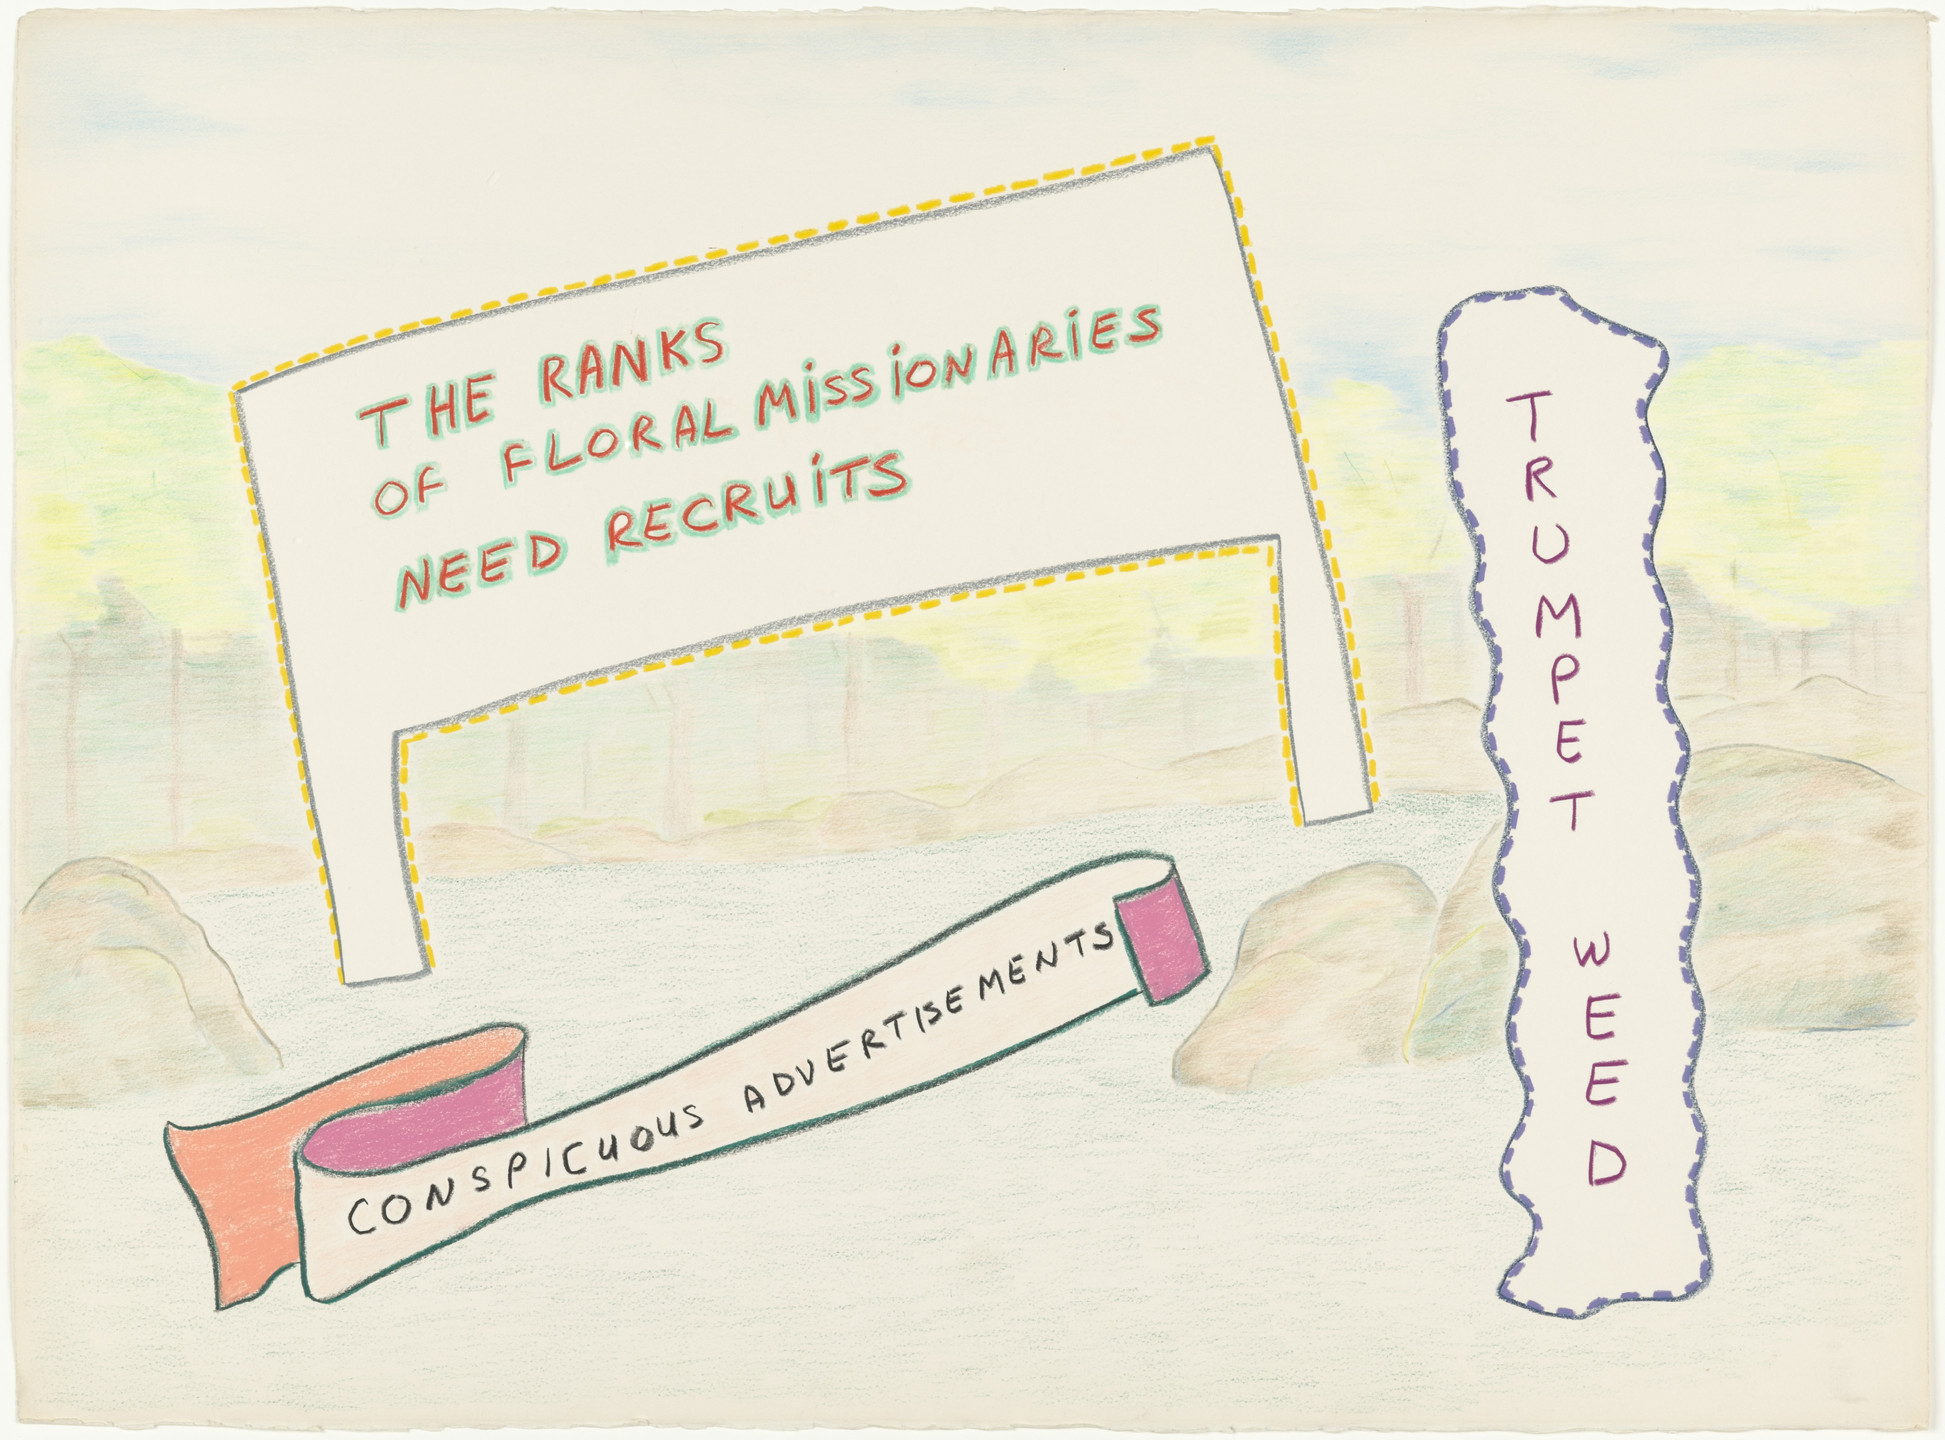 THE RANKS
OF FLORAL MiSSiONARiES
NEED RECRUiTS
TRUMPET WEED
CONSPICUOUS ADVERTISEMENTS